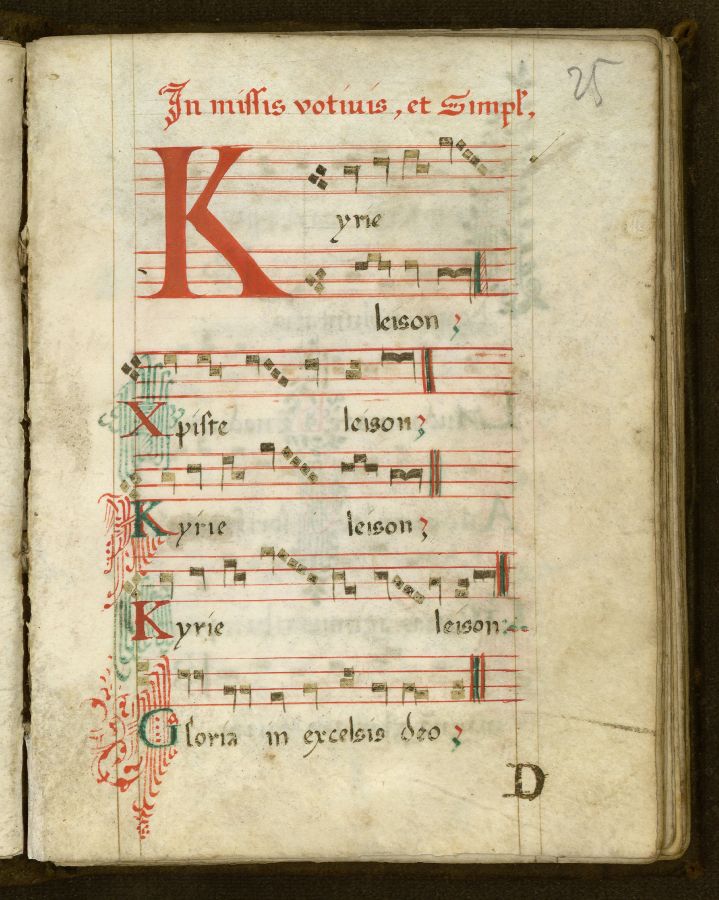 25
In missis votiuis, et Simpl,
Kyrie
leison
Xpiste leison
Kyrie leison
Kyrie leison
Gloria in excelsis deo
D